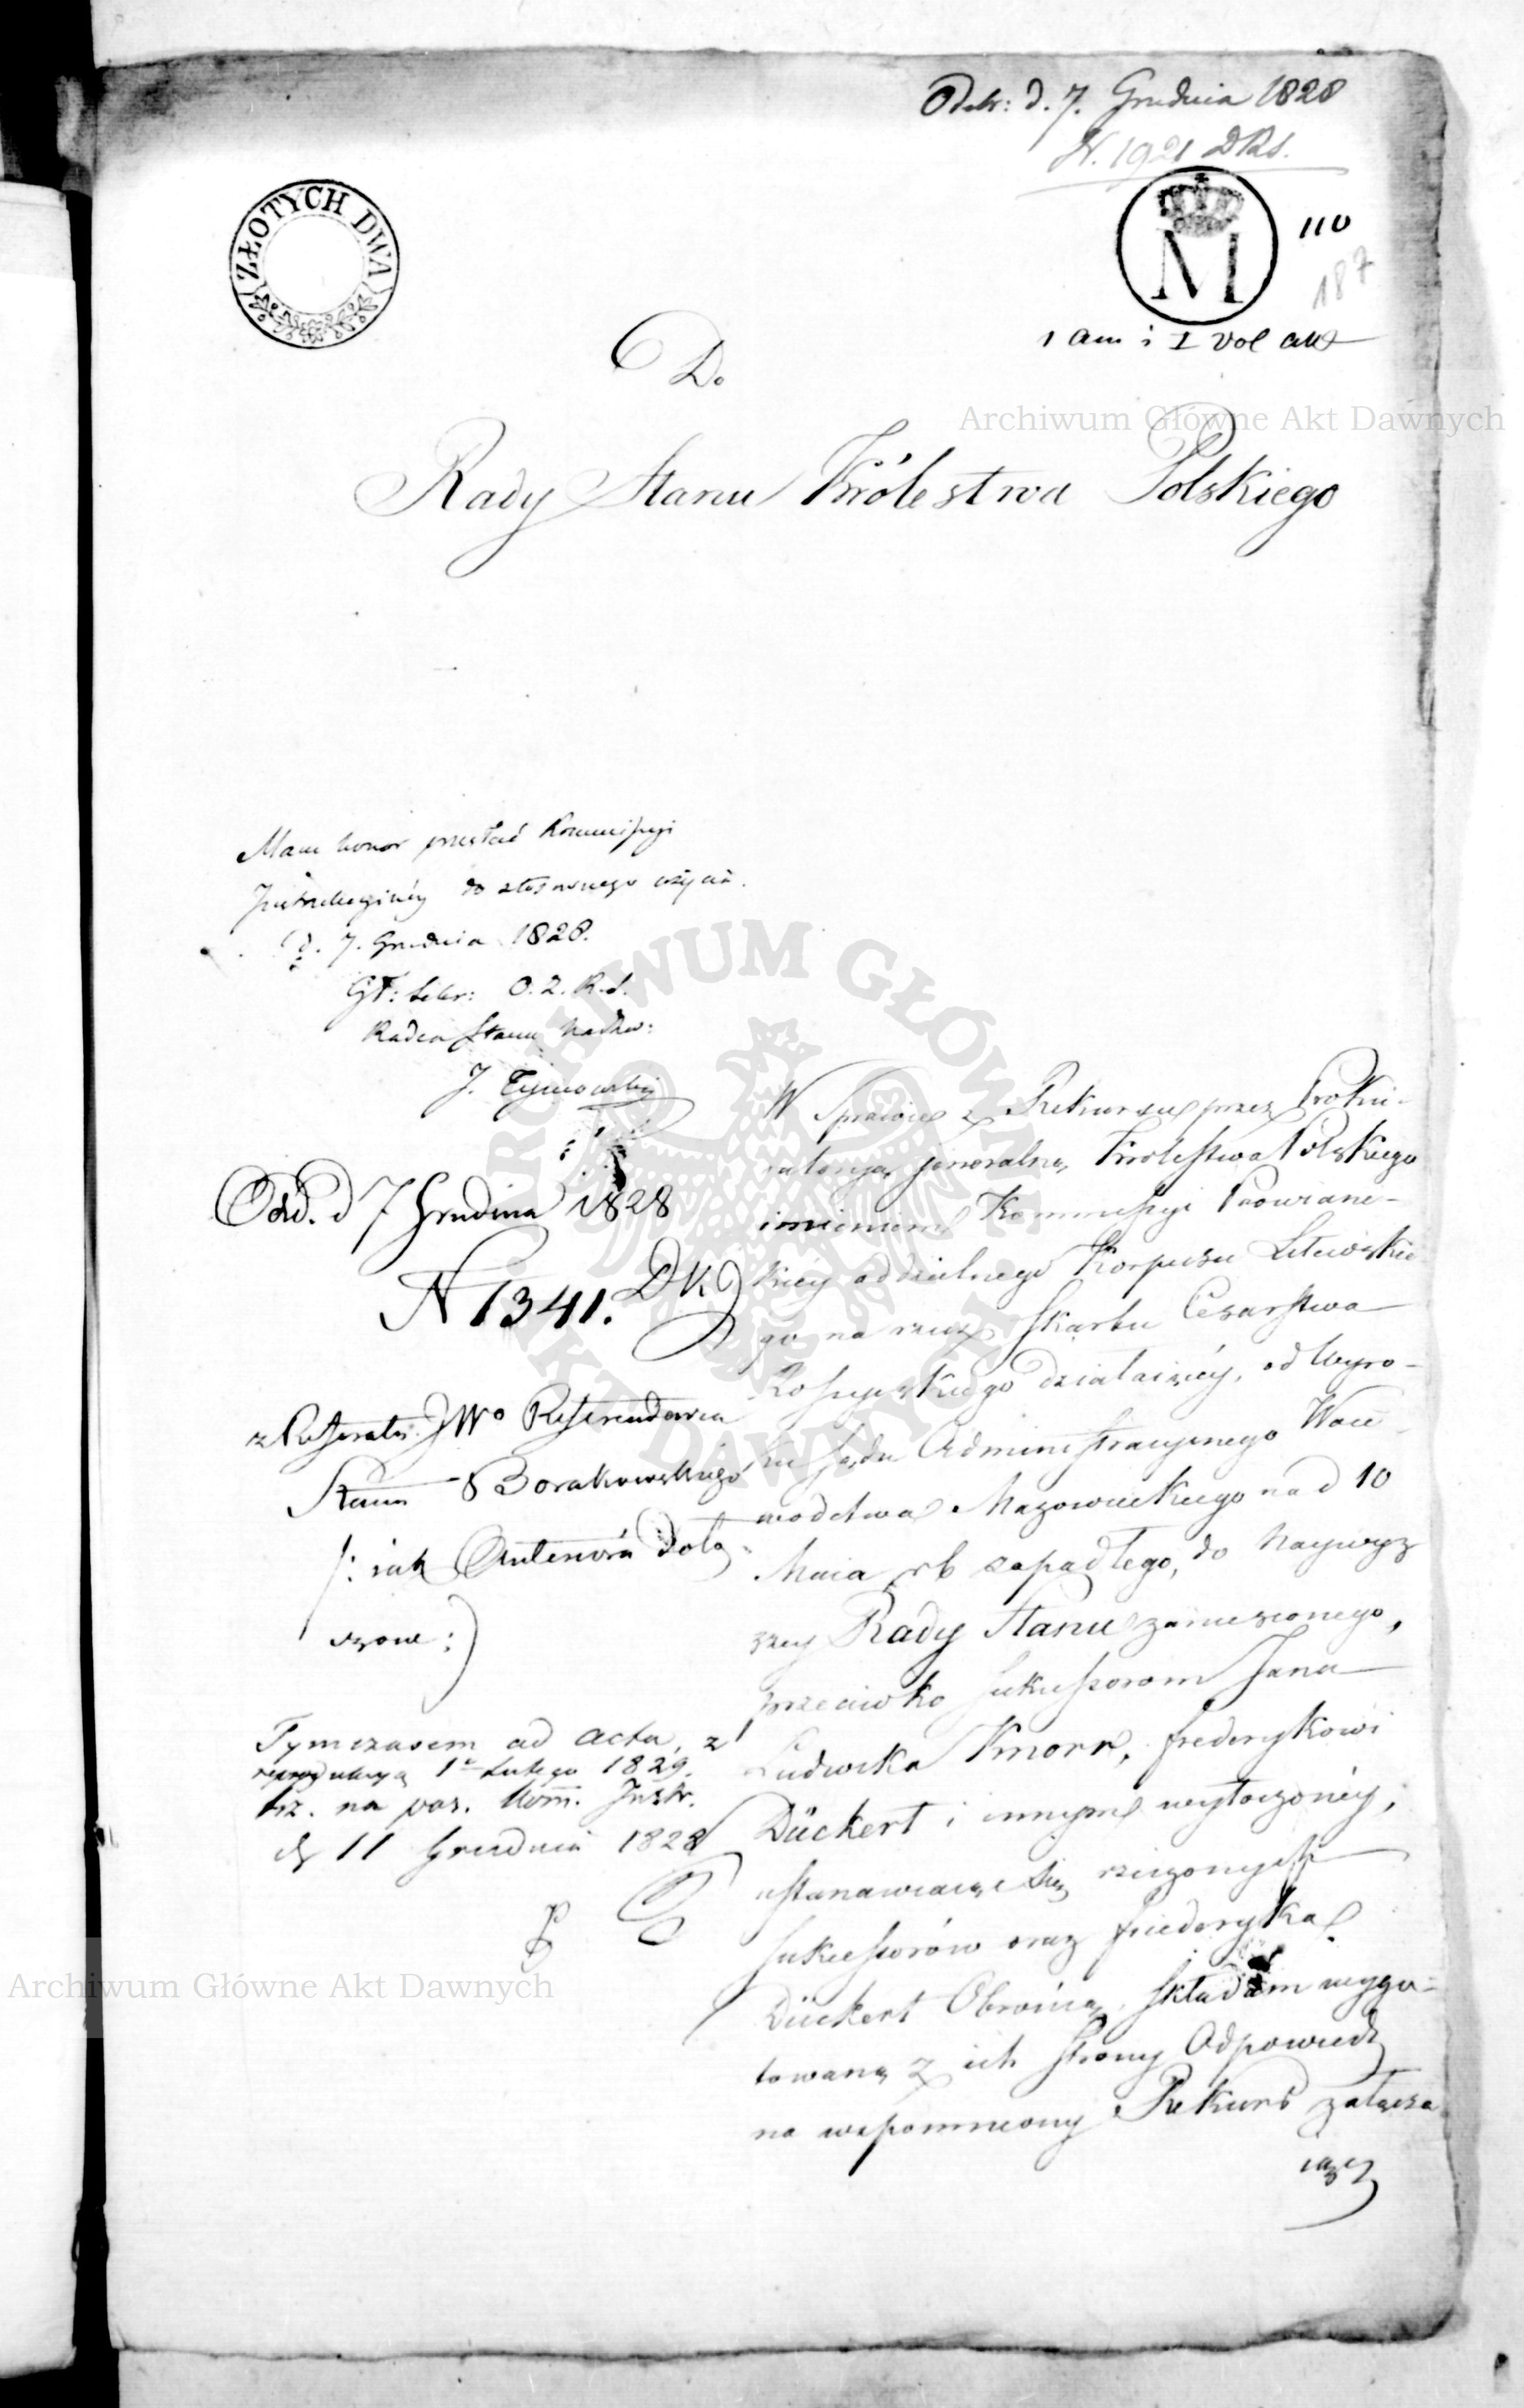 Odebr: d. 7. Grudnia 1828
N. 1921 DRS.
ZŁOTYCH DWA
M
110
187
1 am i I vol akt
Do
Archiwum Główne Akt Dawnych
Rady Stanu Królestwa Polskiego
Mam honor przesłać Kommissyi
Instrukcyinéy do stosownego użycia.
d. 7. Grudnia 1828.
Gł: Sekr: O. Z. R. S.
Radca Stanu Nadzw:
J. Tymowski
Odd. d 7 Grudnia 1828
N 1341. DK
z Referatu JWo Referendarza
Stanu Borakowskiego
/: iak Antenora dołą-
czone :)
Tymczasem ad acta, z
reprodukcyą 1o Lutego 1829.
na pos. Kom. Instr.
d 11 Grudnia 1828
W Sprawie z Rekursu przez Proku-
ratoryą Jeneralną Królestwa Polskiego
imieniem Kommissyi Prowianc-
kiey oddzielnego Korpusu Litewskie
go na rzecz Skarbu Cesarstwa
Rossyiskiego działaiącéy, od Wyro-
ku Sądu Administracyinego Woie-
wodztwa Mazowieckiego na d 10
Maia rb zapadłego, do Naywyż
szey Rady Stanu zaniesionego,
przeciwko Sukcessorom Jana
Ludwika Knorr, Frederykowi
Dückert i innym wytoczonéy,
ustanawiaiąc się rzeczonych
Sukcessorów oraz Friederyka
Dückert Obrońcą, składam wygo-
towaną z ich Strony Odpowiedź
na wspomniony Rekurs załącza
iąc
Archiwum Główne Akt Dawnych
ARCHIWUM GŁÓWNE AKT DAWNYCH